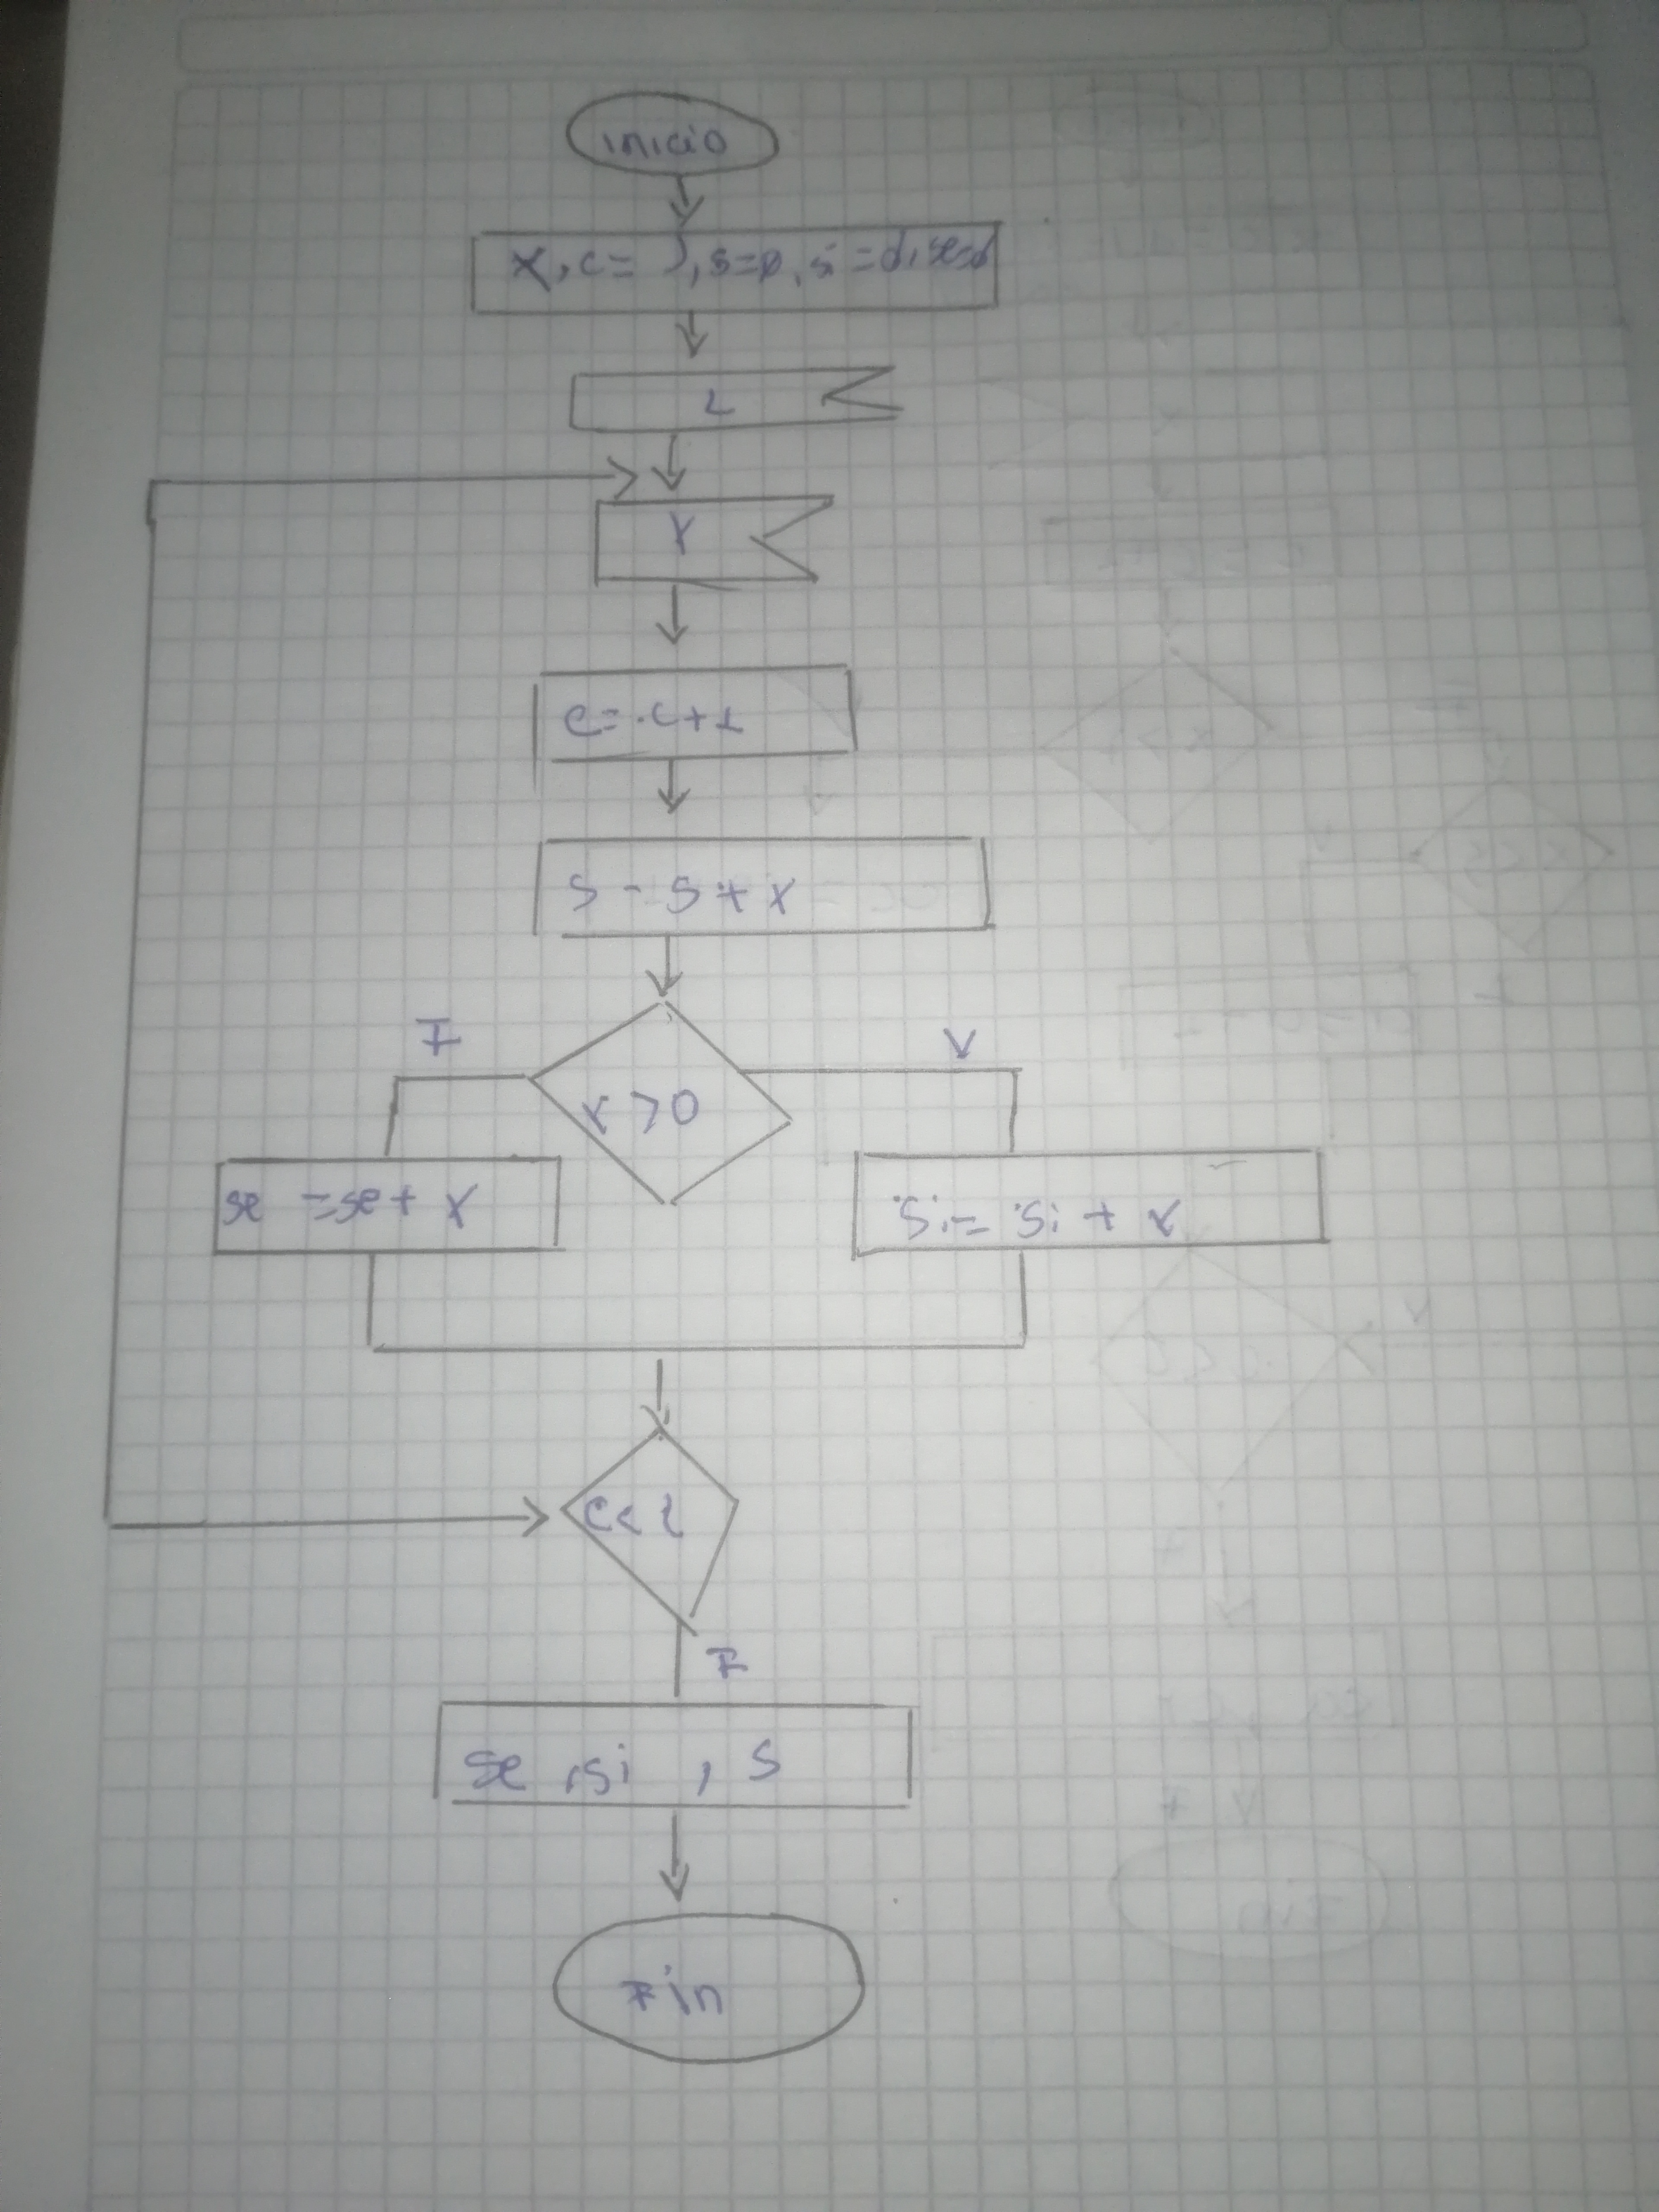 inicio
x, c= ), s=0, si=0, se=0
L
X
c= c+1
s - s + x
F V
x >0
se =se+ x
si= si + x
c< l
F
se ,si , s
Fin